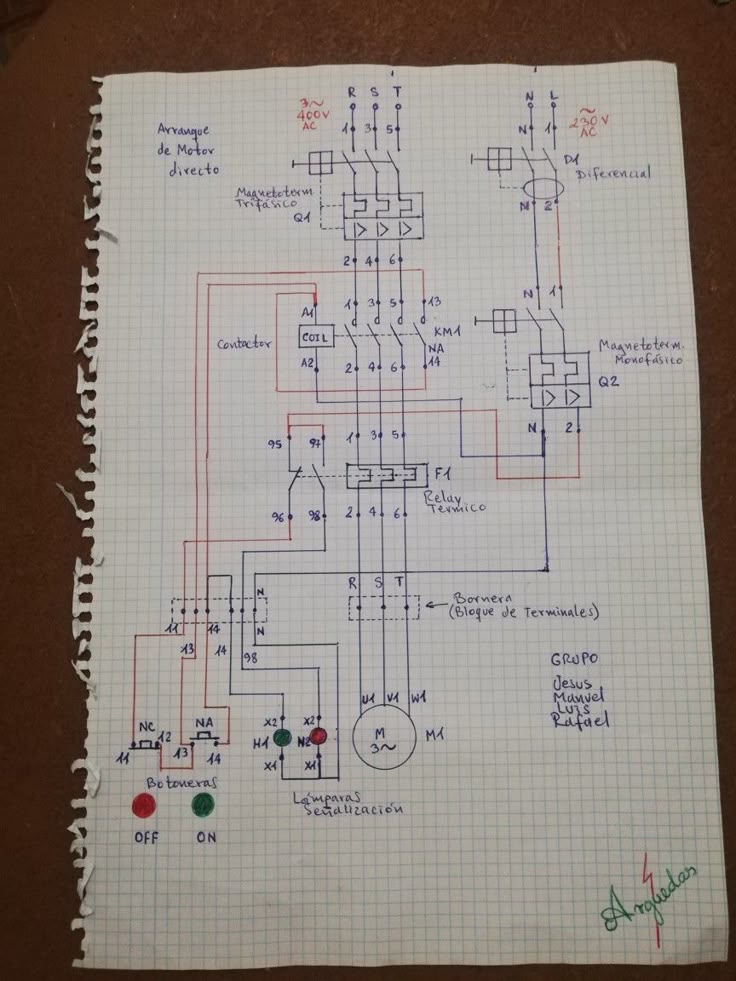 Arranque
de Motor
directo
3~
400V
AC
R S T
1 3 5
N L
N 1
~
230V
AC
D1
Diferencial
N 2
Magnetoterm.
Trifásico
Q1
2 4 6
N 1
A1
1 3 5 13
Contactor
COIL
KM1
NA
A2
2 4 6 14
Magnetoterm.
Monofásico
Q2
N 2
95 97
1 3 5
F1
Relay
Termico
96 98
2 4 6
R S T
N
N
11
13
14
14
98
Bornera
(Bloque de Terminales)
GRUPO
Jesus
Manuel
Luis
Rafael
U1 V1 W1
M
3~
M1
NC
11
12
NA
13
14
X2
H1
X1
X2
H2
X1
Botoneras
OFF
ON
Lámparas
Señalización
Arguedas